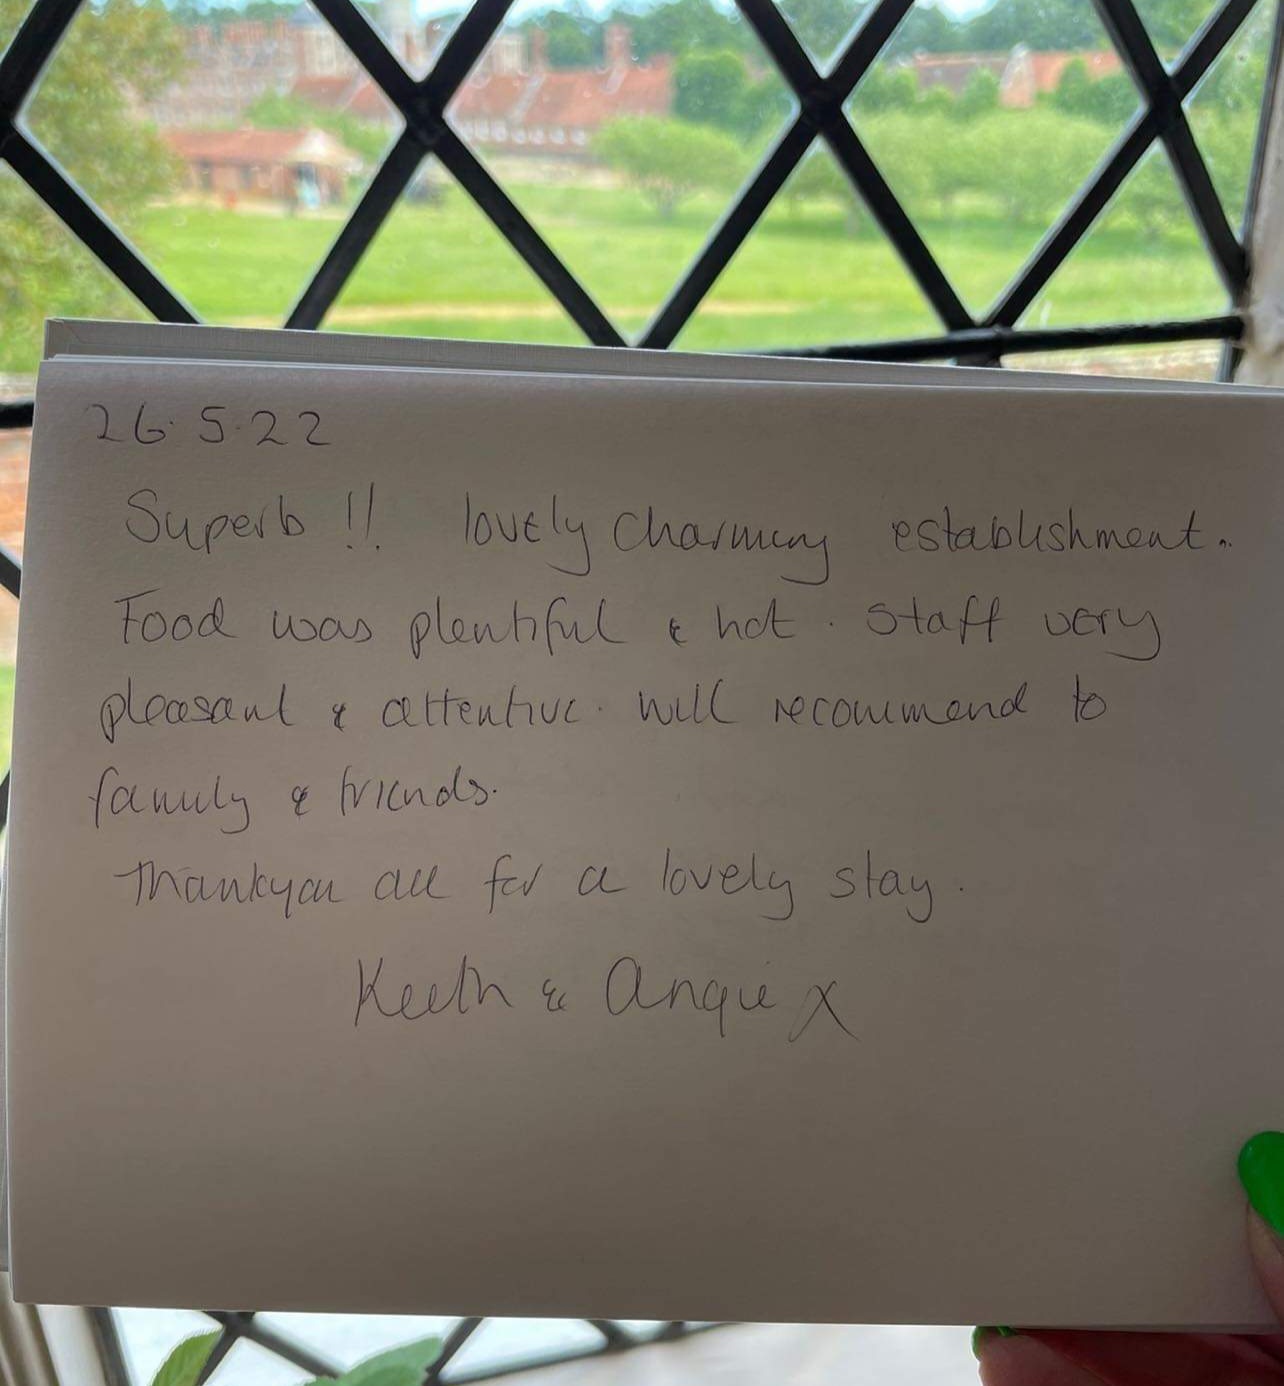 26.5.22
Superb !! lovely charming establishment.
Food was plentiful & hot. Staff very
pleasant & attentive. will recommend to
family & friends.
Thankyou all for a lovely stay.
Keith & Angie X